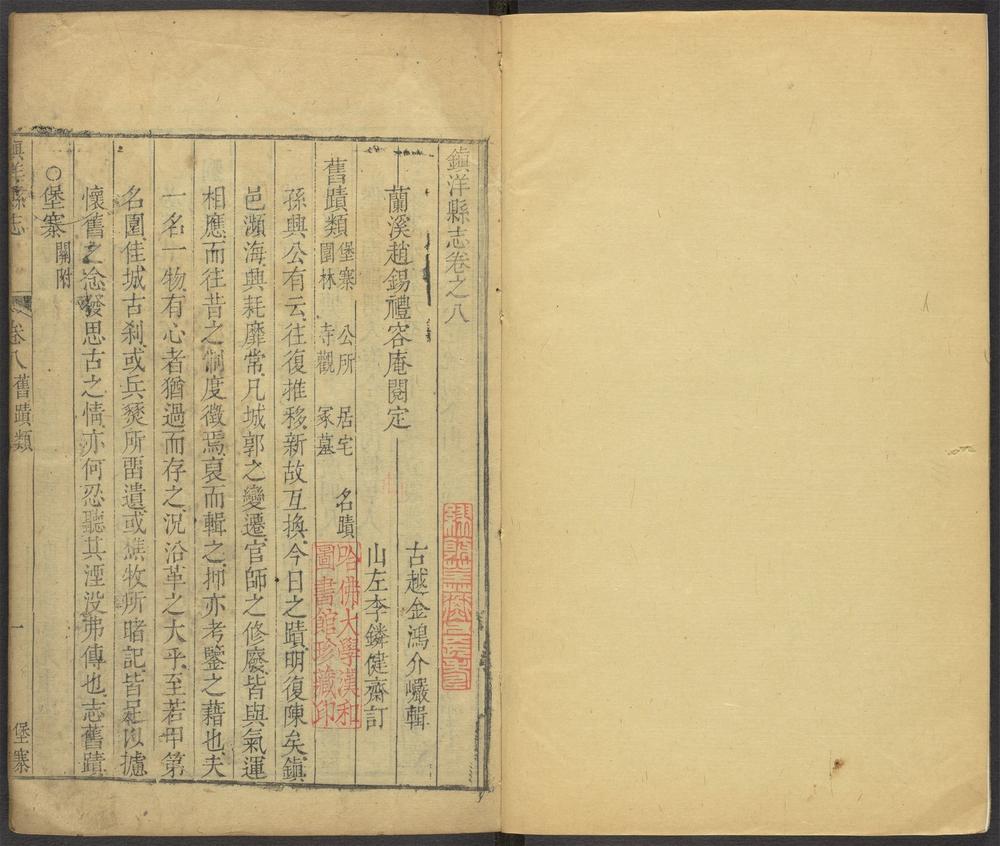 鎮洋縣志卷之八
古越金鴻介巖輯
蘭溪趙錫禮容庵閱定
山左李鏻健齋訂
舊蹟類 堡寨 公所 居宅 名蹟
園林 寺觀 冢墓
哈佛大學漢和
圖書館珍藏印
孫興公有云往復推移新故互換今日之蹟明復陳矣鎮
邑瀕海興耗靡常凡城郭之變遷官師之修廢皆與氣運
相應而往昔之制度徵焉裒而輯之抑亦考鑒之藉也夫
一名一物有心者猶過而存之況沿革之大乎至若甲第
名園佳城古刹或兵燹所畱遺或樵牧所睹記皆足以攄
懷舊之念發思古之情亦何忍聽其湮没弗傳也志舊蹟
○堡寨 關附
鎮洋縣志 卷八舊蹟類 一 堡寨